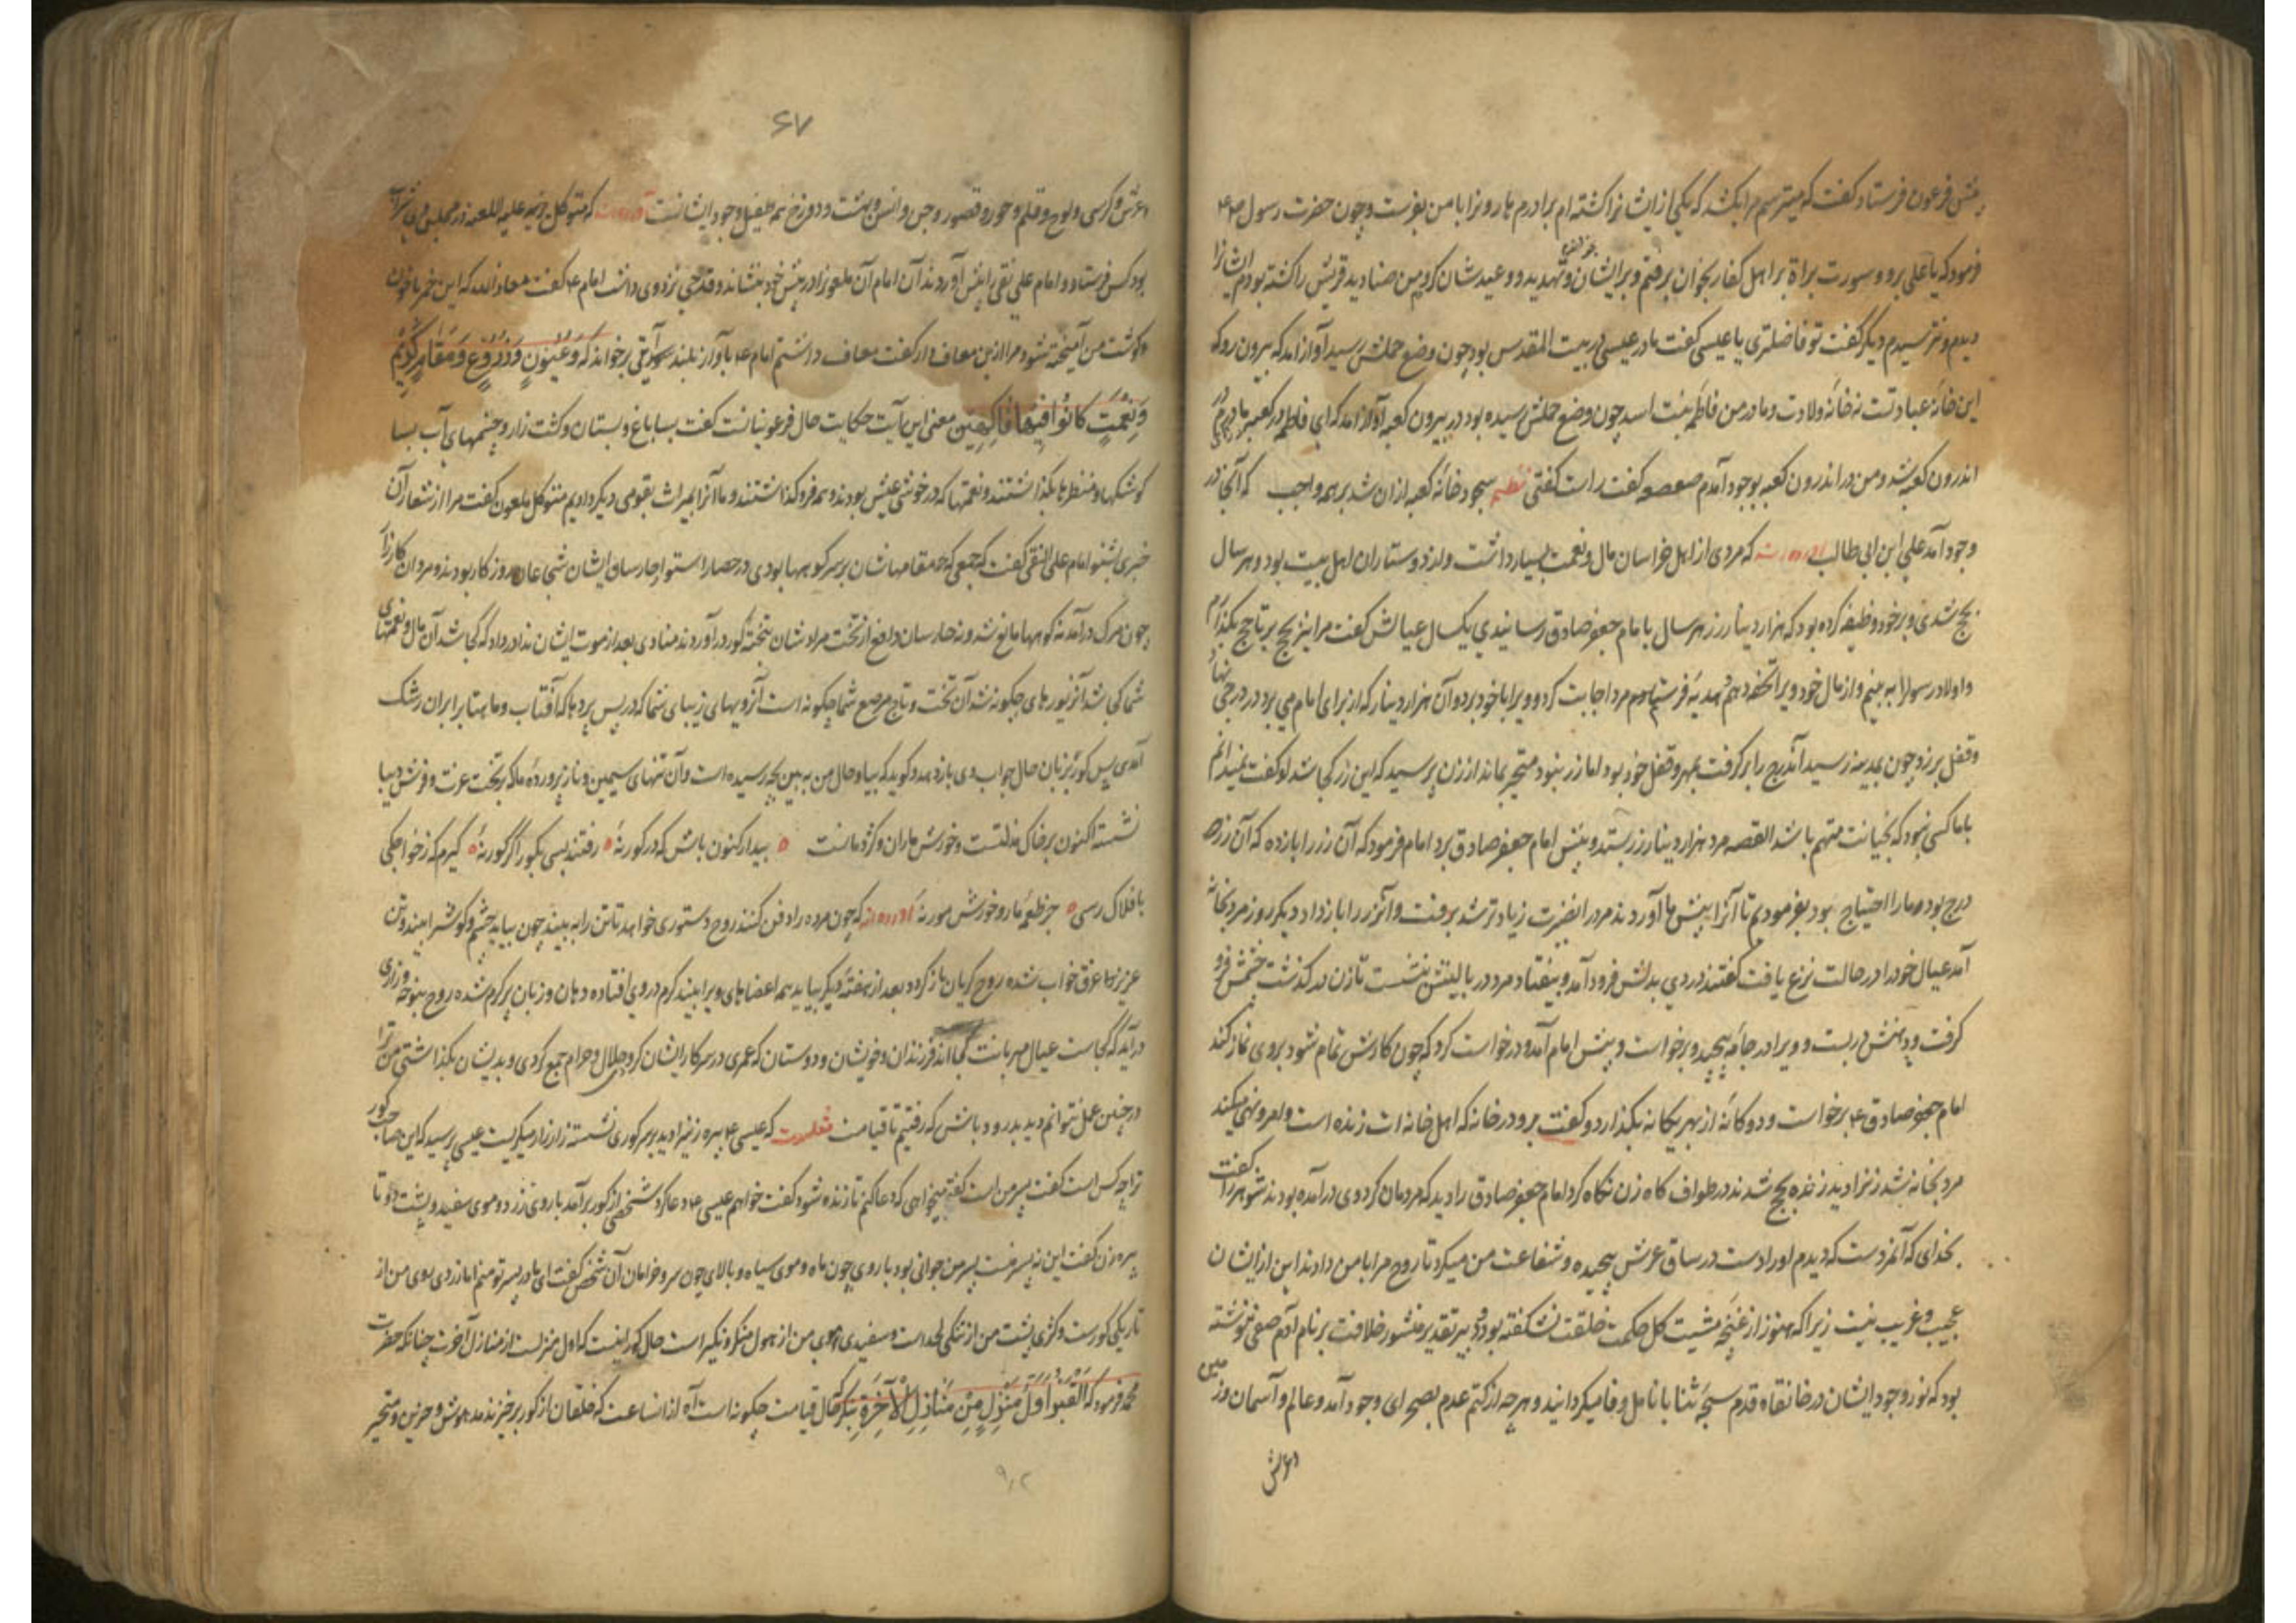 پیش فرعون فرستاد گفت که میترسم مرا بکشد که یکی از ایشانرا کشته ام برادرم هارونرا با من بفرست و چون حضرت رسول
فرمود که یا علی برو و سورت براة بر اهل کفار بخوان برفتم و بر ایشان خواندم و تهدید و وعید شان کردم من صنادید قریش را کشته بودم ایشانرا
دیدم و نترسیدم دیگر گفت تو فاضلتری یا عیسی گفت مادر عیسی در بیت المقدس بود چون وضع حملش رسید آواز آمد که بیرون رو که
این خانه عبادتست نه خانه ولادت و مادر من فاطمه بنت اسد چون وضع حملش رسیده بود در بیرون کعبه آواز آمد که ای فاطمه در کعبه
اندرون کعبه شد و من در اندرون کعبه بوجود آمدم صعصعه گفت راست گفتی نظم سجود خانه کعبه از آن شد بر همه واجب که آنجا در
وجود آمد علی ابن ابی طالب آورده اند که مردی از اهل خراسان مال و نعمت بسیار داشت و از دوستاران اهل بیت بود و هر سال
بحج شدی و بر خود وظیفه کرده بود که هزار دینار زر هر سال با امام جعفر صادق رسانیدی یکسال عیالش گفت مرا نیز بحج بر تا حج بگذارم
و اولاد رسول را به بینم و از مال خود ویرا تحفه دهم و هدیه فرستم مرد اجابت کرد و ویرا با خود برد و آن هزار دینار که از برای امام می برد در درجی نهاد
و قفل بر زد چون بمدینه رسید آندرج را بر گرفت بمهر و قفل خود بود اما زر نبود متحیر بماند از زن پرسید که این زر کجا شد او گفت نمیدانم
با ما کسی نبود که بخیانت متهم باشد القصه مرد هزار دینار زر بستد و پیش امام جعفر صادق برد امام فرمود که آن زر را باز ده که آن زر در
درج بود و ما را احتیاج بود بفرمودیم تا آنرا پیش ما آوردند مرد را بصیرت زیادتر شد برفت و آن زر را باز داد دیگر روز مرد بخانه
آمد عیال خود را در حالت نزع یافت گفتند دردی بدلش فرود آمد و بیفتاد مرد در بالینش بنشست تا زن در گذشت چشمش فرو
گرفت و دهنش در بست و ویرا در جامه پیچید و برخواست و پیش امام آمد و درخواست کرد که چون کارش تمام شود بر وی نماز کند
امام جعفر صادق ع برخواست و دوگانه از بهر یگانه بگذارد و گفت برو در خانه که اهل خانه ات زنده است و امر و نهی میکند
مرد بخانه شد زنرا دید زنده بحج شدند در طواف گاه زن نگاه کرد امام جعفر صادق را دید که مردمان گرد وی در آمده بودند شوهر را گفت
بخدای که آنمرد است که دیدم او را دست در ساق عرش پیچیده و شفاعت من میکرد تا روح مرا با من دادند این از ایشان
عجیب و غریب نیست زیرا که هنوز از غنچه مشیت گل حکمت خلقت نشکفته بود و دبیر تقدیر منشور خلافت بر نام آدم صفی ننوشته
بود که نور وجود ایشان در خانقاه قدم سبحه ثنا با نامل وفا میگردانید و هر چه از کتم عدم بصحرای وجود آمد و عالم و آسمان و زمین
و عرش
۶۷
و عرش و کرسی و لوح و قلم و حور و قصور و جن و انس و بهشت و دوزخ همه طفیل وجود ایشانست آورده اند که متوکل خلیفه علیه اللعنه در مجلس
بود کس فرستاد و امام علی نقی را پیش آوردند آن امام آن ملعونرا در پیش خود بنشاند و قدحی نزد وی داشت امام ع گفت معاذ الله که این خمر با خون
و گوشت من آمیخته شود مرا ازین معاف دار گفت معاف داشتم امام ع بآواز بلند آیتی برخواند که وَعُیُونٍ وَزُرُوعٍ وَمَقَامٍ کَرِیمٍ
وَنَعْمَةٍ کَانُوا فِیهَا فَاکِهِینَ معنی این آیت حکایت حال فرعونیانست گفت بسا باغ و بستان و کشت زار و چشمهای آب بسا
کوشکها و منظرها بگذاشتند و نعمتها که در خوشی عیش بودند و همه فرو گذاشتند و ما آنرا بمیراث بقومی دیگر دادیم متوکل ملعون گفت مرا از اشعار آن
خبری بشنو امام علی النقی گفت که جمعی که مقامهاشان بر سر کوهها بودی در حصار استوار حارسان ایشان شجاعان روز کار بودند و مردان کارزار
چون مرگ در آمد نه کوهها مانع شد و نه حارسان دافع از تخت مراد شان بتخته گور در آوردند منادی بعد از موت ایشان ندا در داد که کجا شد آن مال و نعمتهای
شما کی شد آن زیورهای چگونه شد آن تخت و تاج مرصع شما چگونه است آن رویهای زیبای شما که در پس پردها که آفتاب و ماهتاب بر ایران رشک
آمدی پس گور بزبان حال جواب وی باز دهد و گوید که بیا و حال من به بین بچه رسیده است و آن تنهای سیمین و ناز پرورده ما که بر تخت عزت و فرش دیبا
نشسته اکنون بر خاک مذلتست و خورش ماران و کژدمانست ٥ بیدار کنون باش که در گور نه ٥ رفتند بسی بگور اگر کور نه ٥ گیرم که ز خواجگی
بافلاک رسی ٥ جز طعمه مار و خورش مور نه آورده اند که چون مرده را دفن کنند روح دستوری خواهد تا تن را به بیند چون بیاید چشم و گوش را بیند و تن
عزیز را غرق خواب شده روح گریان باز گردد بعد از هفته دیگر بیاید همه اعضاهای ویرا بیند کرم در وی افتاده دهان و زبان پر کرم شده روح بنوحه و زاری
در آید که کجاست عیال مهربانت کجا اند فرزندان و خویشان و دوستان که عمری در سر کار ایشان کردی حلال و حرام جمع کردی و بدیشان بگذاشتی من ترا
در چنین عمل نتوانم دید بدرود باش که رفتیم تا قیامت نقلست که عیسی ع پیره زنیرا دید بر سر گوری نشسته زار زار میگریست عیسی پرسید که این صاحب گور
ترا چه کس است گفت پسر من است گفت میخواهی که دعا کنم تا زنده شود گفت خواهم عیسی ع دعا کرد شخصی از گور بر آمد با روی زرد و موی سفید و پشت دوتا
پیره زن گفت این نه پسر منست پسر من جوانی بود با روی چون ماه و موی سیاه و بالای چون سرو خرامان آن شخص گفت ای مادر پسر تو منم اما زردی روی من از
تاریکی گورست و کژی پشت من از تنگی لحد است و سفیدی موی من از هول منکر و نکیر است حال گور اینست که اول منزلست از منازل آخرت چنانکه حضرت
محمد فرمود که اَلْقَبْرُ اَوَّلُ مَنْزِلٍ مِنْ مَنَازِلِ الْآخِرَةِ بنگر که حال قیامت چگونه است آه از انساعت که خلقان از گور برخیزند مدهوش و حزین و متحیر